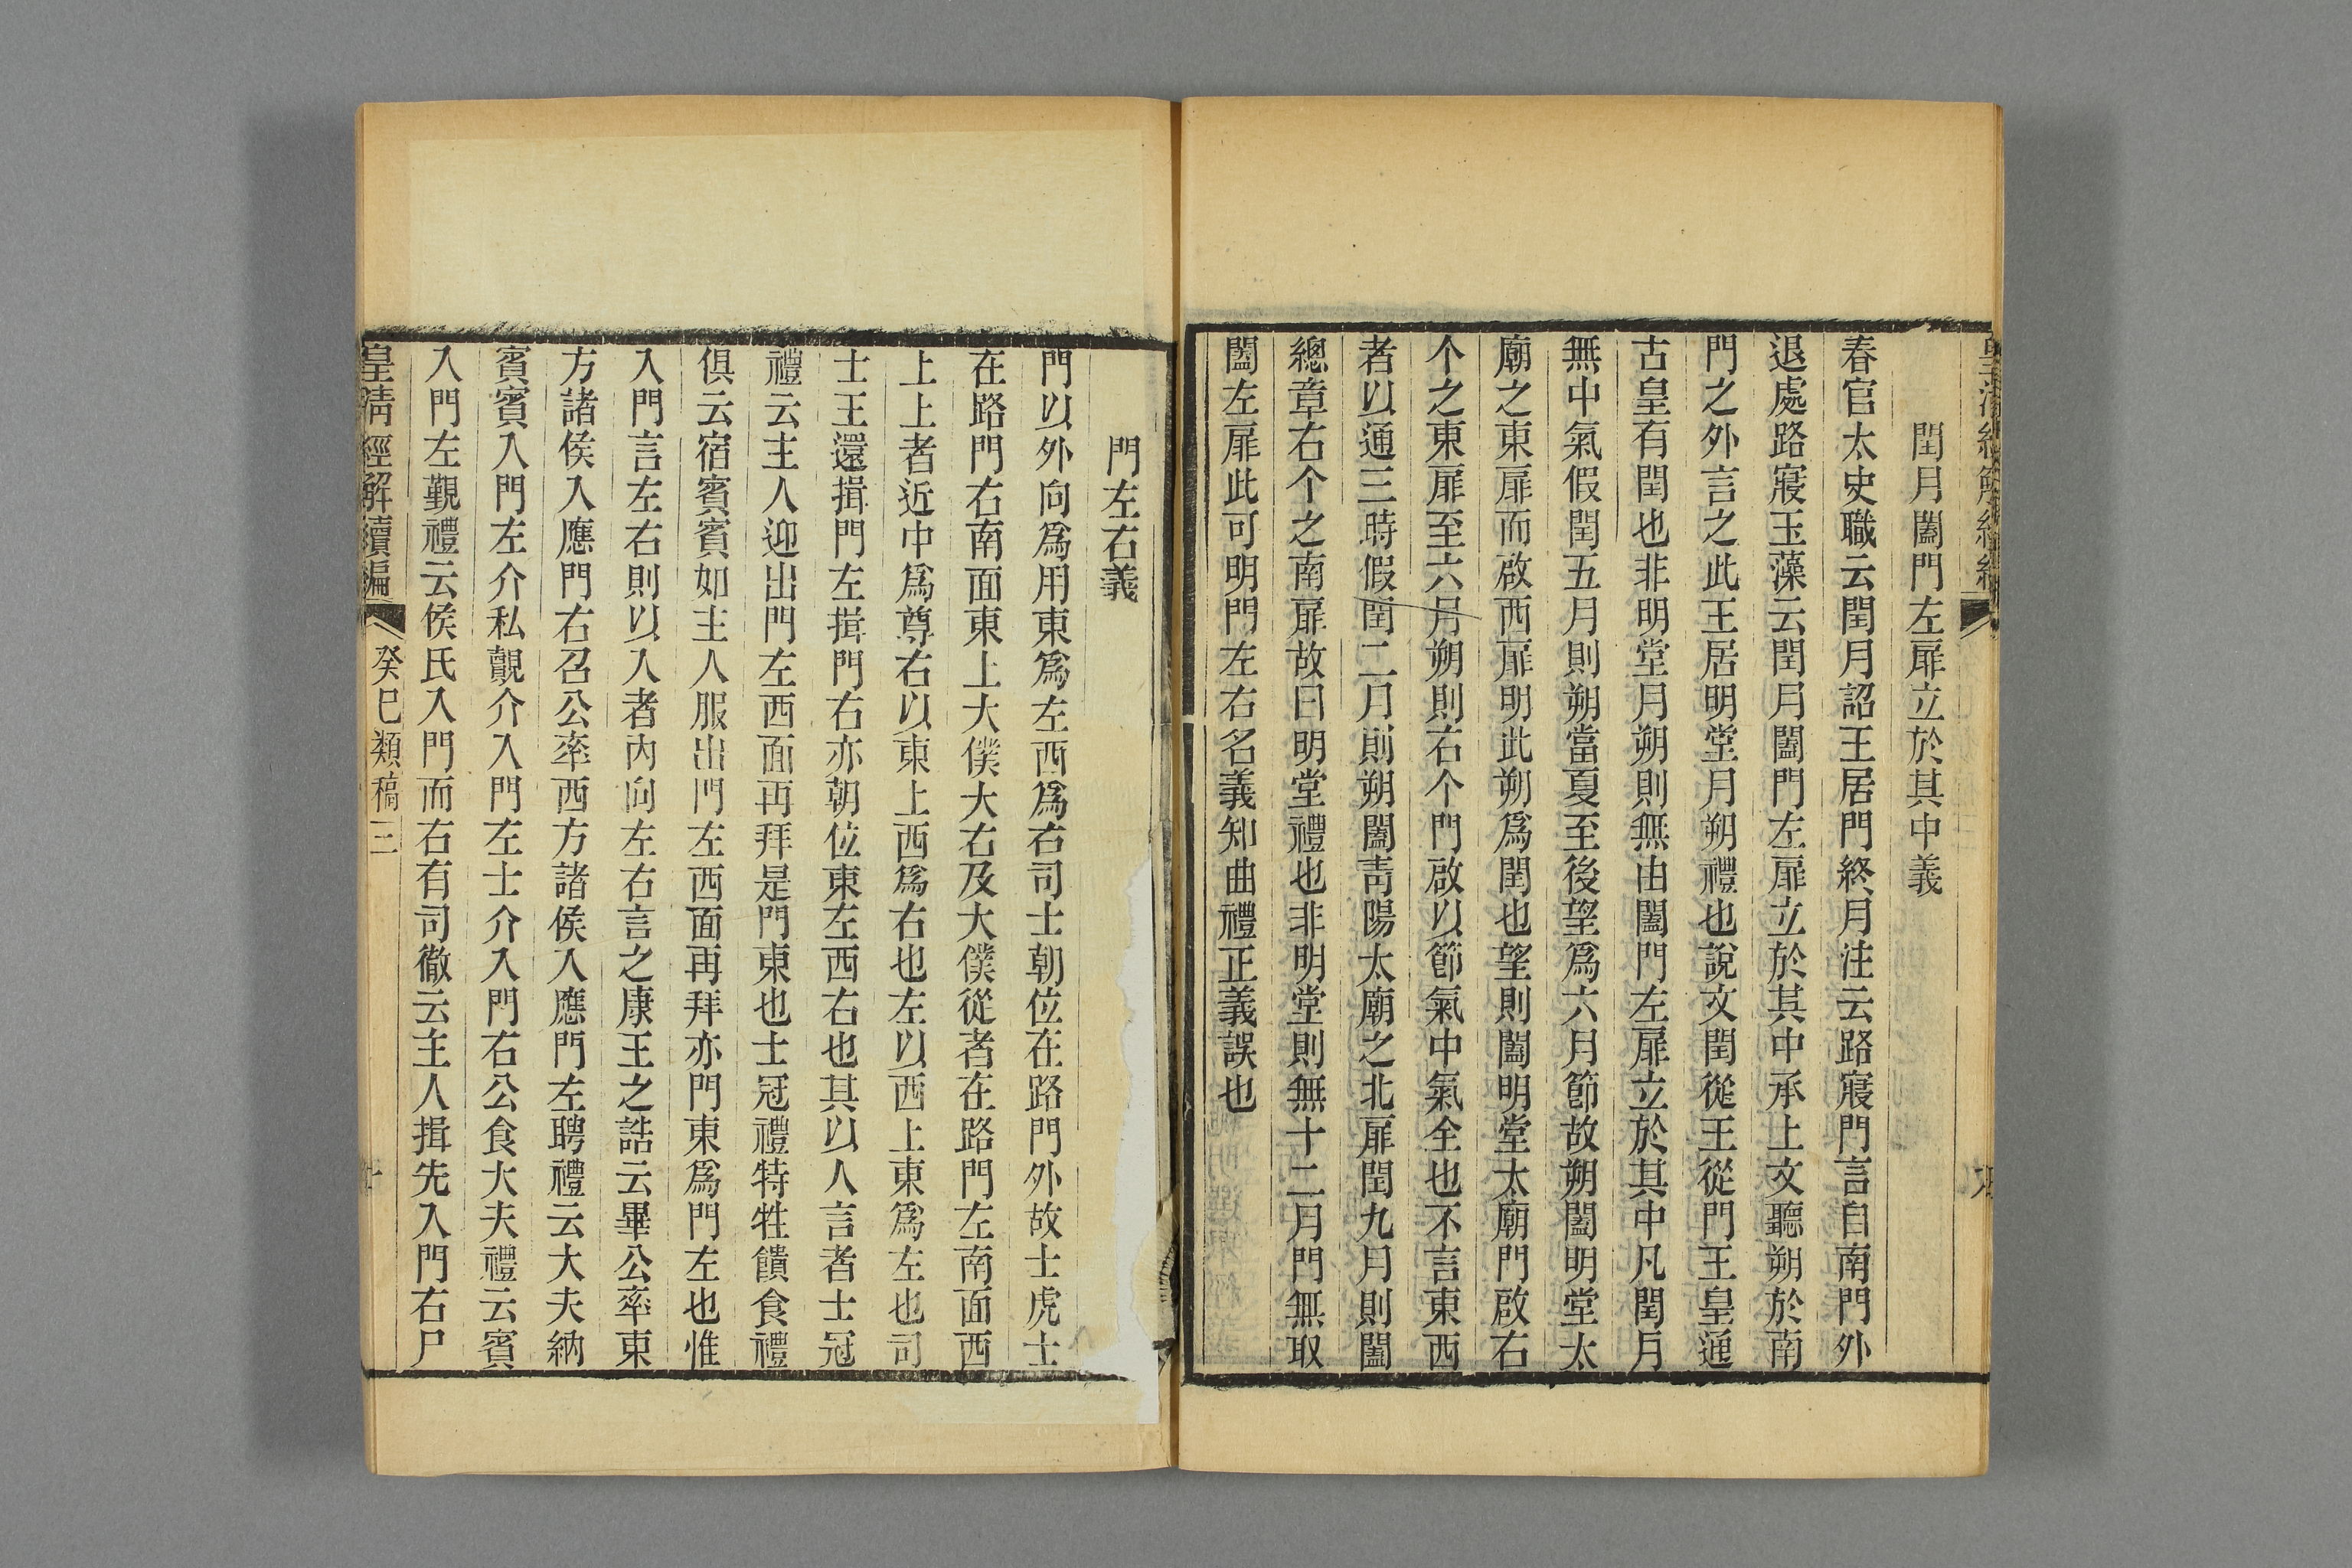 閏月闔門左扉立於其中義
春官太史職云閏月詔王居門終月注云路寢門言自南門外
退處路寢玉藻云閏月闔門左扉立於其中承上文聽朔於南
門之外言之此王居明堂月朔禮也說文閏從王從門王皇通
古皇有閏也非明堂月朔則無由闔門左扉立於其中凡閏月
無中氣假閏五月則朔當夏至後望爲六月節故朔闔明堂太
廟之東扉而啟西扉明此朔爲閏也望則闔明堂太廟門啟右
个之東扉至六月朔則右个門啟以節氣中氣全也不言東西
者以通三時假閏二月則朔闔靑陽太廟之北扉閏九月則闔
總章右个之南扉故曰明堂禮也非明堂則無十二月門無取
闔左扉此可明門左右名義知曲禮正義誤也
門左右義
門以外向爲用東爲左西爲右司士朝位在路門外故士虎士
在路門右南面東上大僕大右及大僕從者在路門左南面西
上上者近中爲尊右以東上西爲右也左以西上東爲左也司
士王還揖門左揖門右亦朝位東左西右也其以人言者士冠
禮云主人迎出門左西面再拜是門東也士冠禮特牲饋食禮
俱云宿賓賓如主人服出門左西面再拜亦門東爲門左也惟
入門言左右則以入者內向左右言之康王之誥云畢公率東
方諸侯入應門右召公率西方諸侯入應門左聘禮云大夫納
賓賓入門左介私覿介入門左士介入門右公食大夫禮云賓
入門左覲禮云侯氏入門而右有司徹云主人揖先入門右尸
皇淸經解續編 癸巳類稿三